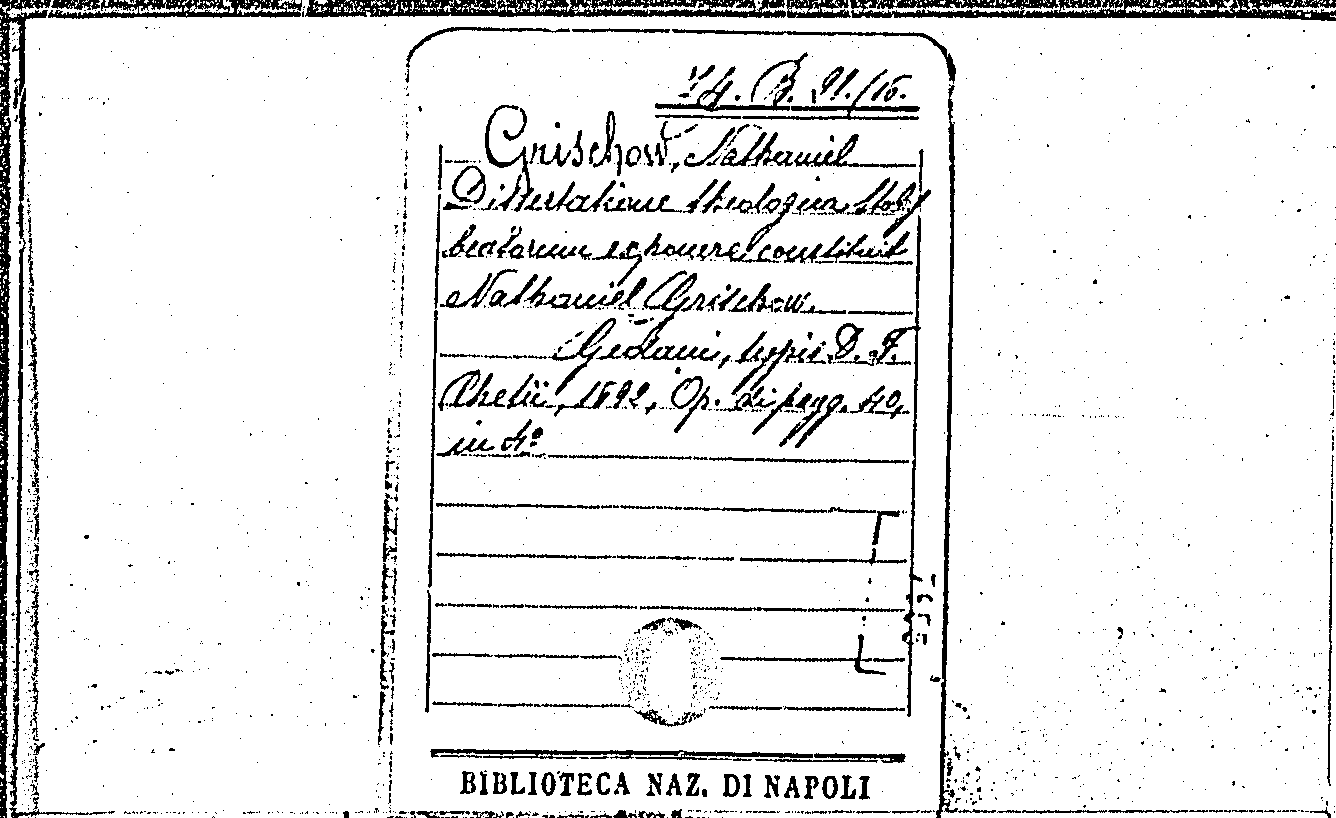 Grischow, Nathaniel
Dissertatione theologica
beatorum exponere constituit
Nathaniel Grischow.
Gedani, typis D. F.
Rhetii, 1692, Op. di pagg. 40,
in 4º
BIBLIOTECA NAZ. DI NAPOLI